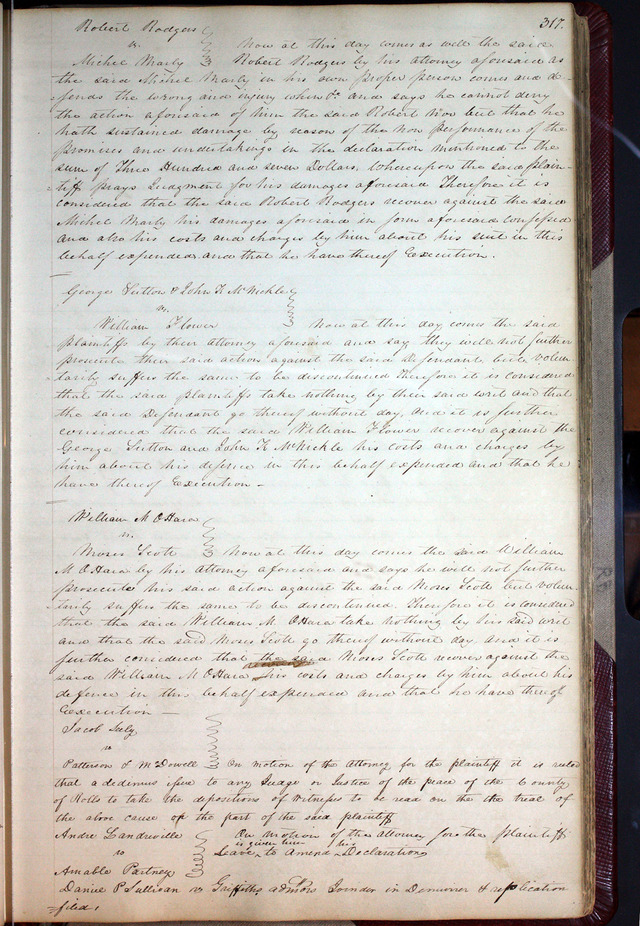 317.
Robert Rodgers
vs.
Michel Marly Now at this day comes as well the said
Robert Rodgers by his attorney aforesaid as
the said Michel Marly in his own proper person comes and de-
fends the wrong and injury when &c and says he cannot deny
the action aforesaid of him the said Robert nor but that he
hath sustained damage by reason of the non performance of the
promises and undertakings in the declaration mentioned to the
sum of Three Hundred and seven Dollars. Whereupon the said plain-
tiff prays Judgment for his damages aforesaid Therefore it is
considered that the said Robert Rodgers recover against the said
Michel Marly his damages aforesaid in form aforesaid confessed
and also his costs and charges by him about his suit in this
behalf expended and that he have thereof Execution.
George Sutton & John K McNickle
vs.
William Flower Now at this day comes the said
plaintiffs by their attorney aforesaid and say they will not further
prosecute their said action against the said Defendant but volun-
tarily suffers the same to be discontinued Therefore it is considered
that the said plaintiffs take nothing by their said writ and that
the said Defendant go thereof without day, and it is further
considered that the said William Flower recover against the
George Sutton and John K McNickle his costs and charges by
him about his defence in this behalf expended and that he
have thereof Execution -
William M O Hara
vs.
Moses Scott Now at this day comes the said William
M O Hara by his attorney aforesaid and says he will not further
prosecute his said action against the said Moses Scott but volun-
tarily suffers the same to be discontinued. Therefore it is considered
that the said William M. O Hara take nothing by his said writ
and that the said Moses Scott go thereof without day. and it is
further considered that the said Moses Scott recover against the
said William M O Hara his costs and charges by him about his
defence in this behalf expended and that he have thereof
Execution -
Jacob Seely
vs
Patterson & McDowell On motion of the attorney for the plaintiff it is ruled
that a dedimus issue to any Judge or Justice of the peace of the County
of Rolls to take the depositions of Witnesses to be read on the the trial of
the above cause on the part of the said plaintiff
Andre Landreville On motion of the attorney for the plaintiff
vs is given him his
Leave to amend Declaration
Amable Partney
Daniel P Sullivan vs Griffiths admors Joinder in Demurrer & replication
filed.